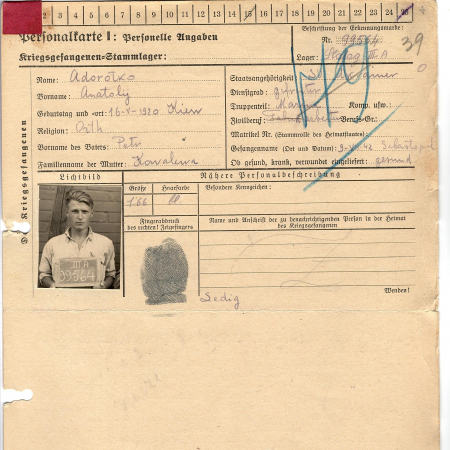 2 3 4 5 6 7 8 9 10 11 12 13 14 15 16 17 18 19 20 21 22 23 24 25
Personalkarte I: Personelle Angaben
Kriegsgefangenen-Stammlager:
Beschriftung der Erkennungsmarke:
Nr. 99564
Lager: Stalag III A
39
0
179
Des Kriegsgefangenen
Name: Adorotko
Vorname: Anatolij
Geburtstag und -ort: 16-V-1920 Kiew
Religion: Orth
Vorname des Vaters: Petr
Familienname der Mutter: Kowalewa
Staatsangehörigkeit:
Dienstgrad:
Truppenteil: Komp. usw.
Zivilberuf: Berufs-Gr.:
Matrikel Nr. (Stammrolle des Heimatstaates):
Gefangennahme (Ort und Datum): 42 Sebastopol
Ob gesund, krank, verwundet eingeliefert: gesund
Lichtbild
Nähere Personalbeschreibung
Größe
Haarfarbe
Besondere Kennzeichen:
1.66
Fingerabdruck
des rechten Zeigefingers
Name und Anschrift der zu benachrichtigenden Person in der Heimat
des Kriegsgefangenen
III A
99564
Ledig
Wenden!